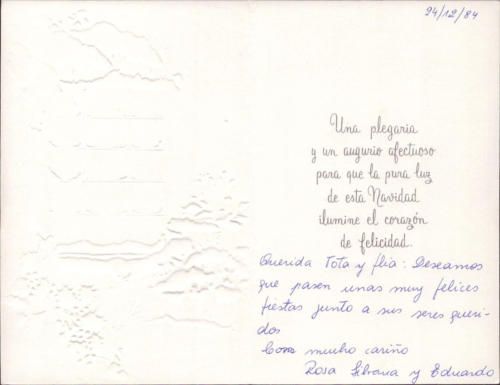 24/12/84
Una plegaria
y un augurio afectuoso
para que la pura luz
de esta Navidad
ilumine el corazón
de felicidad.
Querida Tota y flia: Deseamos
que pasen unas muy felices
fiestas junto a sus seres queri-
dos
Con mucho cariño
Rosa Silvana y Eduardo